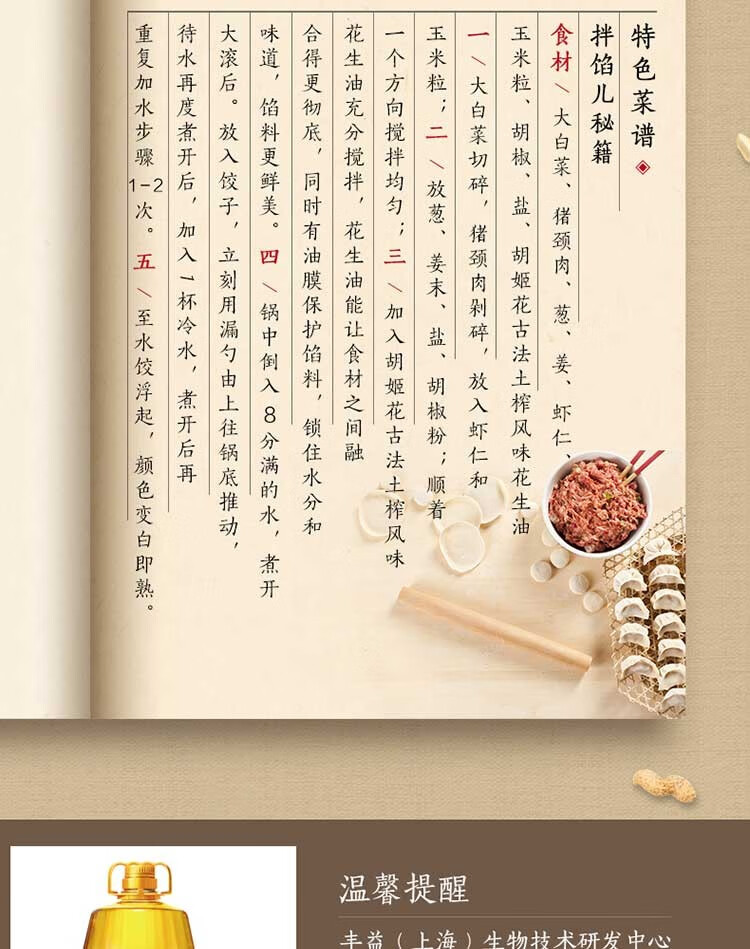 特色菜谱
拌馅儿秘籍
食材\大白菜、猪颈肉、葱、姜、虾仁、
玉米粒、胡椒、盐、胡姬花古法土榨风味花生油
一\大白菜切碎，猪颈肉剁碎，放入虾仁和
玉米粒；二\放葱、姜末、盐、胡椒粉；顺着
一个方向搅拌均匀；三\加入胡姬花古法土榨风味
花生油充分搅拌，花生油能让食材之间融
合得更彻底，同时有油膜保护馅料，锁住水分和
味道，馅料更鲜美。四\锅中倒入8分满的水，煮开
大滚后。放入饺子，立刻用漏勺由上往锅底推动，
待水再度煮开后，加入1杯冷水，煮开后再
重复加水步骤1-2次。五\至水饺浮起，颜色变白即熟。
温馨提醒
丰益（上海）生物技术研发中心